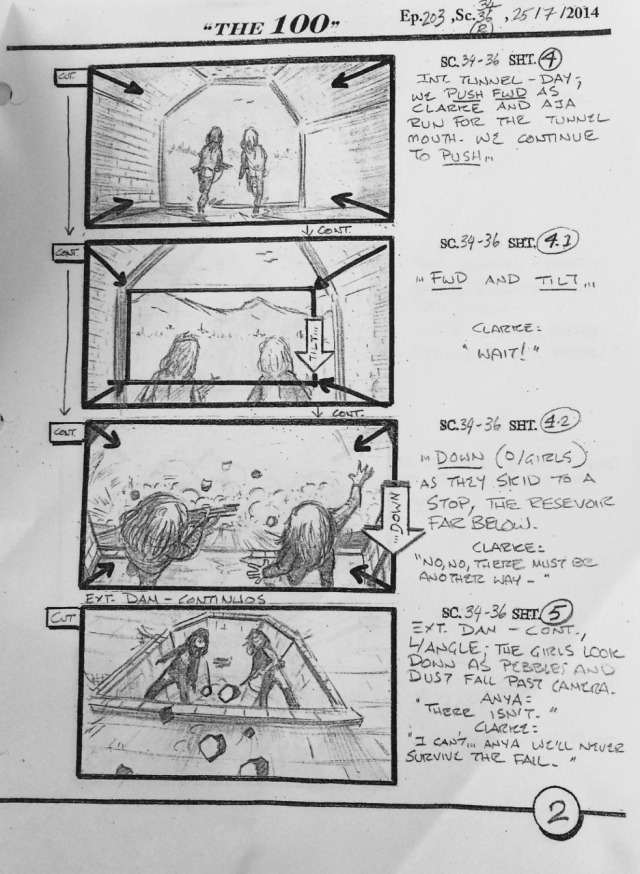 "THE 100"
Ep. 203, Sc. 34-36 (R), 25/7/2014
CUT
SC. 34-36 SHT. 4
INT. TUNNEL - DAY;
WE PUSH FWD AS
CLARKE AND AJA
RUN FOR THE TUNNEL
MOUTH. WE CONTINUE
TO PUSH...
CONT.
CONT.
SC. 34-36 SHT. 4.1
... FWD AND TILT...
CLARKE:
"WAIT!"
TILT...
CONT.
CONT.
SC. 34-36 SHT. 4.2
... DOWN (O/GIRLS)
AS THEY SKID TO A
STOP, THE RESEVOIR
FAR BELOW.
CLARKE:
"NO, NO, THERE MUST BE
ANOTHER WAY - "
...DOWN
EXT. DAM - CONTINUOS
CUT
SC. 34-36 SHT. 5
EXT. DAM - CONT.,
L/ANGLE; THE GIRLS LOOK
DOWN AS PEBBLES AND
DUST FALL PAST CAMERA.
ANYA:
"THERE ISN'T."
CLARKE:
"I CAN'T... ANYA WE'LL NEVER
SURVIVE THE FALL."
2